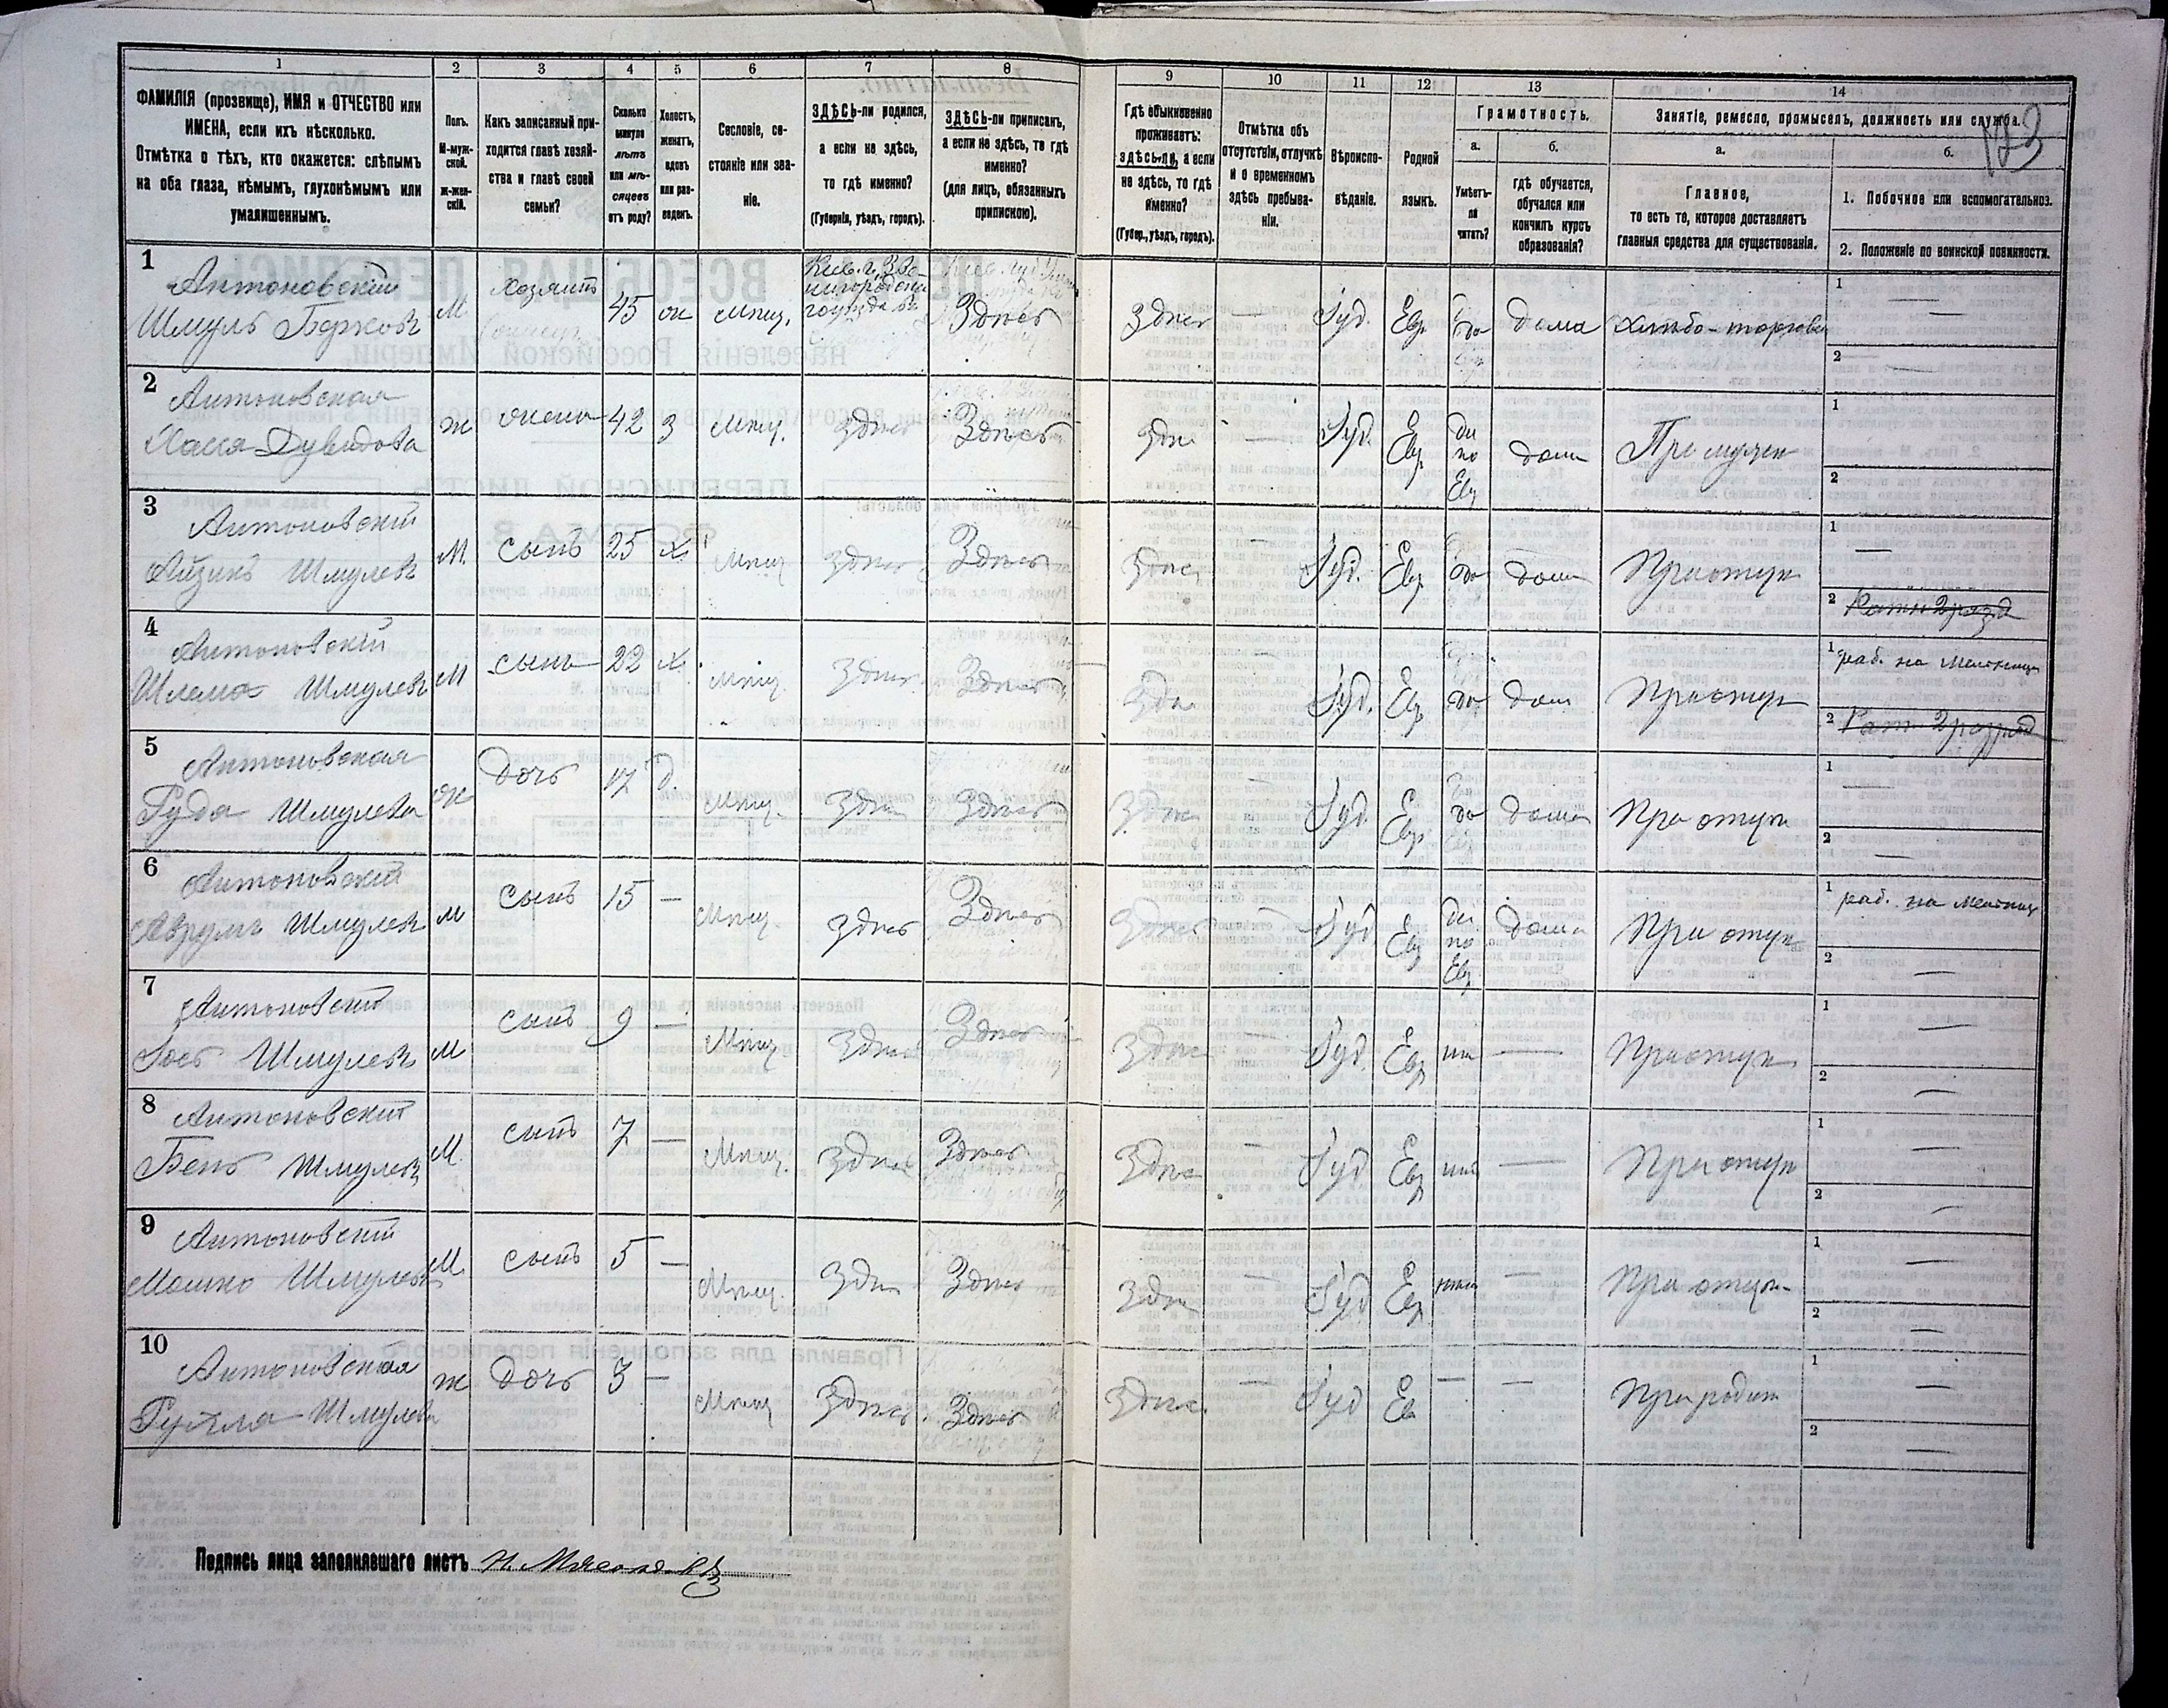 1 2 3 4 5 6 7 8 9 10 11 12 13 14
ФАМИЛІЯ (прозвище), ИМЯ и ОТЧЕСТВО или
ИМЕНА, если ихъ нѣсколько.
Отмѣтка о тѣхъ, кто окажется: слѣпымъ
на оба глаза, нѣмымъ, глухонѣмымъ или
умалишеннымъ.
Полъ.
М-муж-
ской.
Ж-жен-
скій.
Какъ записанный при-
ходится главѣ хозяй-
ства и главѣ своей
семьи?
Сколько
минуло
лѣтъ
или мѣ-
сяцевъ
отъ роду?
Холостъ,
женатъ,
вдовъ
или раз-
веденъ.
Сословіе, со-
стояніе или зва-
ніе.
ЗДѢСЬ-ли родился,
а если не здѣсь,
то гдѣ именно?
(Губернія, уѣздъ, городъ).
ЗДѢСЬ-ли приписанъ,
а если не здѣсь, то гдѣ
именно?
(для лицъ, обязанныхъ
припискою).
Гдѣ обыкновенно
проживаетъ:
здѣсь-ли, а если
не здѣсь, то гдѣ
именно?
(Губер., уѣздъ, городъ).
Отмѣтка объ
отсутствіи, отлучкѣ
и о временномъ
здѣсь пребыва-
ніи.
Вѣроиспо-
вѣданіе.
Родной
языкъ.
Грамотность.
а.
Умѣетъ-
ли
читать?
б.
гдѣ обучается,
обучался или
кончилъ курсъ
образованія?
Занятіе, ремесло, промыселъ, должность или служба.
123
а.
Главное,
то есть то, которое доставляетъ
главныя средства для существованія.
б.
1. Побочное или вспомогательное.
2. Положеніе по воинской повинности.
1
Антоновскій
Шмуль Берковъ
М хозяинъ 45 ж Мѣщ. Здѣсь Здѣсь — Іуд. Евр да дома Хлѣбо-торговец
1 —
2 —
2
Антоновская
Хася Дувидова
ж жена 42 з Мѣщ. здѣсь Здѣсь Здѣ — Іуд. Евр да по Евр дома При мужѣ
1
2
3
Антоновскій
Айзикъ Шмулевъ
М. сынъ 25 х Мѣщ здѣсь Здѣсь Здѣс — Іуд. Евр да дома При отцѣ
1 —
2
4
Антоновскій
Шлема Шмулевъ
М сынъ 22 х Мѣщ. Здѣсь Здѣсь Здѣ — Іуд. Евр да дома При отцѣ
1 раб. на мельницѣ
2
5
Антоновская
Руда Шмулева
ж дочь 17 д. Мѣщ. Здѣс Здѣсь Здѣс — Іуд Евр да дома При отцѣ
1 —
2 —
6
Антоновскій
Аврумъ Шмулевъ
м сынъ 15 — Мѣщ. Здѣсь Здѣсь Здѣсь — Іуд. Евр да по Евр дома При отцѣ
1 раб. на мельницѣ
2 —
7
Антоновскій
Іось Шмулевъ
м сынъ 9 — Мѣщ Здѣсь Здѣсь Здѣс — Іуд. Евр нѣ — При отцѣ
1 —
2 —
8
Антоновскій
Бень Шмулевъ
М. сынъ 7 — Мѣщ. Здѣсь Здѣсь Здѣс — Іуд Евр нѣ — При отцѣ
1 —
2 —
9
Антоновскій
Мошко Шмулевъ
М. сынъ 5 — Мѣщ. Здѣ Здѣсь Здѣ — Іуд Евр нѣт — При отцѣ
1 —
2 —
10
Антоновская
Шмулева
ж дочь 3 — Мѣщ Здѣсь Здѣсь Здѣс — Іуд Ев — — При родит
1 —
2 —
Подпись лица заполнявшаго листъ